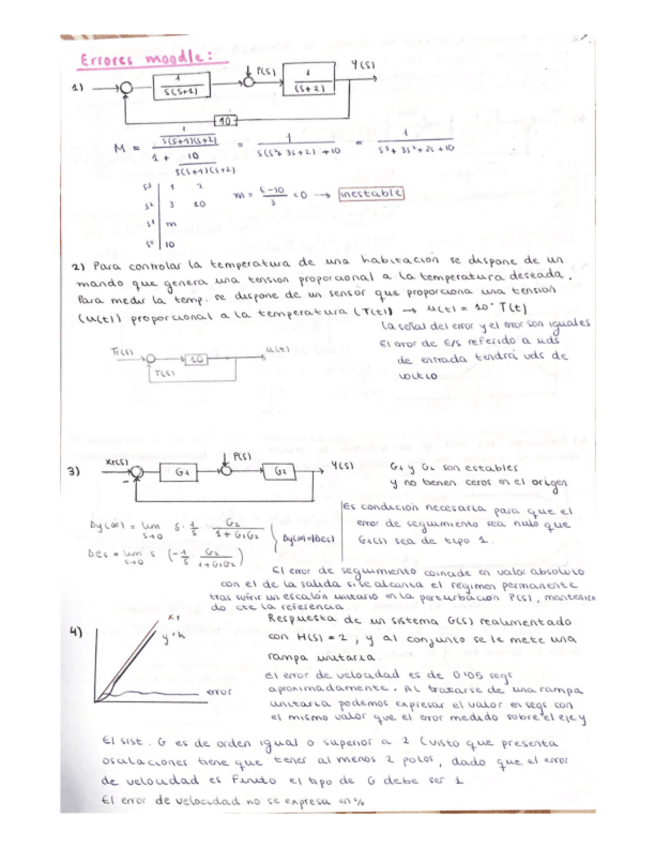 Errores moodle:
1)
1
s(s+1)
P(s)
1
(s+2)
Y(s)
10
M = 1 / s(s+1)(s+2) / 1 + 10 / s(s+1)(s+2) = 1 / s(s²+3s+2)+10 = 1 / s³+3s²+2s+10
s³ 1 2
s² 3 10
s¹ m
s⁰ 10
m = 6-10 / 3 < 0 → inestable
2) Para controlar la temperatura de una habitación se dispone de un
mando que genera una tension proporcional a la temperatura deseada.
Para medir la temp. se dispone de un sensor que proporciona una tension
(u(t)) proporcional a la temperatura (T(t)) → u(t) = 10·T(t)
La señal del error y el error son iguales
El error de E/S referido a uds
de entrada tendrá uds de
voltio
Tr(s)
10
u(t)
T(s)
3)
Xr(s)
G1
P(s)
G2
Y(s)
-
G1 y G2 son estables
y no tienen ceros en el origen
Es condición necesaria para que el
error de seguimiento sea nulo que
G1(s) sea de tipo 1.
Δy(∞) = lim s→0 s · 1/s · G2 / 1+G1G2
Δes = lim s→0 s (-1/s G2 / 1+G1G2)
El error de seguimiento coincide en valor absoluto
con el de la salida si se alcanza el régimen permanente
tras sufrir un escalón unitario en la perturbación P(s), mantenien
do cte la referencia.
4)
xr
y·h
error
Respuesta de un sistema G(s) realimentado
con H(s) = 2, y al conjunto se le mete una
rampa unitaria.
El error de velocidad es de 0'05 segs
aproximadamente. Al tratarse de una rampa
unitaria podemos expresar el valor en segs con
el mismo valor que el error medido sobre el eje y
El sist. G es de orden igual o superior a 2 (visto que presenta
oscilaciones tiene que tener al menos 2 polos, dado que el error
de velocidad es finito el tipo de G debe ser 1
El error de velocidad no se expresa en %